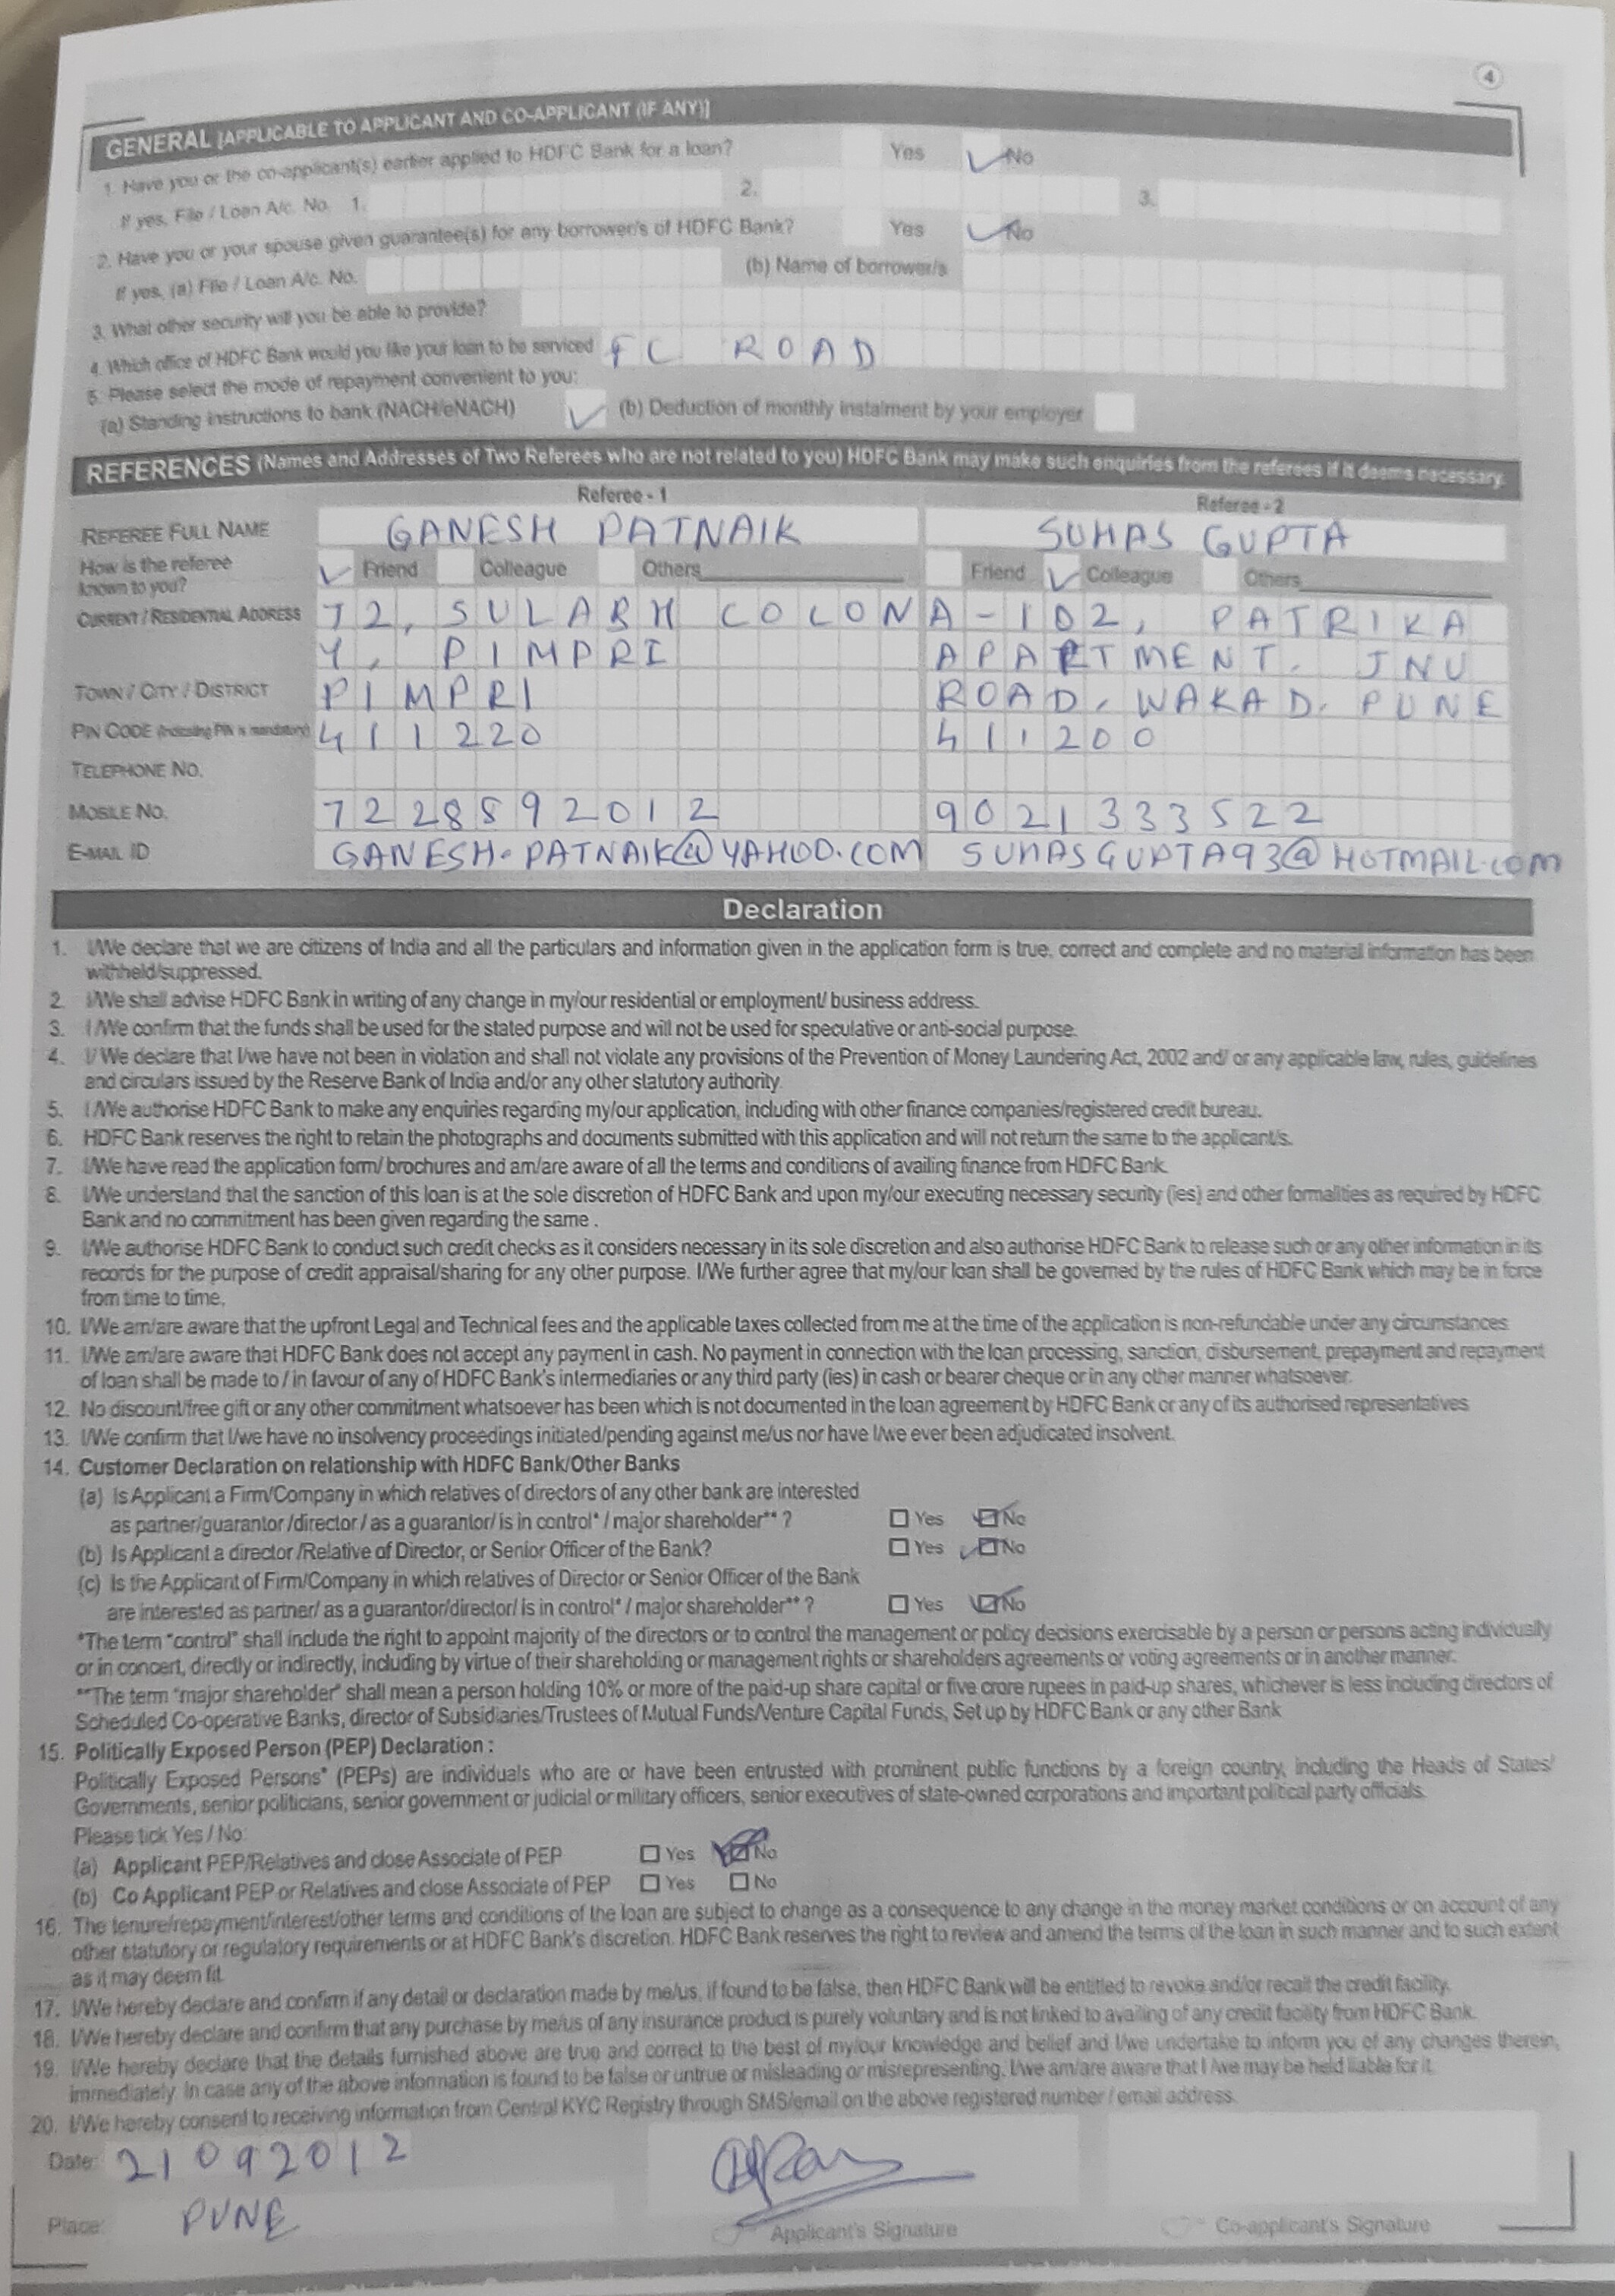 4
GENERAL [APPLICABLE TO APPLICANT AND CO-APPLICANT (IF ANY)]
1. Have you or the co-applicant(s) earlier applied to HDFC Bank for a loan? Yes No
If yes, File / Loan A/c. No. 1. 2. 3.
2. Have you or your spouse given guarantee(s) for any borrower/s of HDFC Bank? Yes No
If yes, (a) File / Loan A/c. No. (b) Name of borrower/s
3. What other security will you be able to provide?
4. Which office of HDFC Bank would you like your loan to be serviced FC ROAD
5. Please select the mode of repayment convenient to you:
(a) Standing instructions to bank (NACH/eNACH) (b) Deduction of monthly instalment by your employer
REFERENCES (Names and Addresses of Two Referees who are not related to you) HDFC Bank may make such enquiries from the referees if it deems necessary.
Referee - 1 Referee - 2
REFEREE FULL NAME GANESH PATNAIK SUHAS GUPTA
How is the referee known to you? Friend Colleague Others Friend Colleague Others
CURRENT / RESIDENTIAL ADDRESS 72, SULABH COLON A-102, PATRIKA
Y, PIMPRI APARTMENT, JNU
TOWN / CITY / DISTRICT PIMPRI ROAD, WAKAD, PUNE
PIN CODE (Indicating PIN is mandatory) 411220 411200
TELEPHONE NO.
MOBILE NO. 7228892012 9021333522
E-MAIL ID GANESH.PATNAIK@YAHOO.COM SUHASGUPTA93@HOTMAIL.COM
Declaration
1. I/We declare that we are citizens of India and all the particulars and information given in the application form is true, correct and complete and no material information has been
withheld/suppressed.
2. I/We shall advise HDFC Bank in writing of any change in my/our residential or employment/ business address.
3. I /We confirm that the funds shall be used for the stated purpose and will not be used for speculative or anti-social purpose.
4. I/ We declare that I/we have not been in violation and shall not violate any provisions of the Prevention of Money Laundering Act, 2002 and/ or any applicable law, rules, guidelines
and circulars issued by the Reserve Bank of India and/or any other statutory authority.
5. I /We authorise HDFC Bank to make any enquiries regarding my/our application, including with other finance companies/registered credit bureau.
6. HDFC Bank reserves the right to retain the photographs and documents submitted with this application and will not return the same to the applicant/s.
7. I/We have read the application form/ brochures and am/are aware of all the terms and conditions of availing finance from HDFC Bank.
8. I/We understand that the sanction of this loan is at the sole discretion of HDFC Bank and upon my/our executing necessary security (ies) and other formalities as required by HDFC
Bank and no commitment has been given regarding the same .
9. I/We authorise HDFC Bank to conduct such credit checks as it considers necessary in its sole discretion and also authorise HDFC Bank to release such or any other information in its
records for the purpose of credit appraisal/sharing for any other purpose. I/We further agree that my/our loan shall be governed by the rules of HDFC Bank which may be in force
from time to time.
10. I/We am/are aware that the upfront Legal and Technical fees and the applicable taxes collected from me at the time of the application is non-refundable under any circumstances.
11. I/We am/are aware that HDFC Bank does not accept any payment in cash. No payment in connection with the loan processing, sanction, disbursement, prepayment and repayment
of loan shall be made to / in favour of any of HDFC Bank's intermediaries or any third party (ies) in cash or bearer cheque or in any other manner whatsoever.
12. No discount/free gift or any other commitment whatsoever has been which is not documented in the loan agreement by HDFC Bank or any of its authorised representatives
13. I/We confirm that I/we have no insolvency proceedings initiated/pending against me/us nor have I/we ever been adjudicated insolvent.
14. Customer Declaration on relationship with HDFC Bank/Other Banks
(a) Is Applicant a Firm/Company in which relatives of directors of any other bank are interested
as partner/guarantor /director / as a guarantor/ is in control* / major shareholder** ? Yes No
(b) Is Applicant a director /Relative of Director, or Senior Officer of the Bank? Yes No
(c) Is the Applicant of Firm/Company in which relatives of Director or Senior Officer of the Bank
are interested as partner/ as a guarantor/director/ is in control* / major shareholder** ? Yes No
*The term "control" shall include the right to appoint majority of the directors or to control the management or policy decisions exercisable by a person or persons acting individually
or in concert, directly or indirectly, including by virtue of their shareholding or management rights or shareholders agreements or voting agreements or in another manner.
**The term "major shareholder" shall mean a person holding 10% or more of the paid-up share capital or five crore rupees in paid-up shares, whichever is less including directors of
Scheduled Co-operative Banks, director of Subsidiaries/Trustees of Mutual Funds/Venture Capital Funds, Set up by HDFC Bank or any other Bank
15. Politically Exposed Person (PEP) Declaration :
Politically Exposed Persons* (PEPs) are individuals who are or have been entrusted with prominent public functions by a foreign country, including the Heads of States/
Governments, senior politicians, senior government or judicial or military officers, senior executives of state-owned corporations and important political party officials.
Please tick Yes / No:
(a) Applicant PEP/Relatives and close Associate of PEP Yes No
(b) Co Applicant PEP or Relatives and close Associate of PEP Yes No
16. The tenure/repayment/interest/other terms and conditions of the loan are subject to change as a consequence to any change in the money market conditions or on account of any
other statutory or regulatory requirements or at HDFC Bank's discretion. HDFC Bank reserves the right to review and amend the terms of the loan in such manner and to such extent
as it may deem fit.
17. I/We hereby declare and confirm if any detail or declaration made by me/us, if found to be false, then HDFC Bank will be entitled to revoke and/or recall the credit facility.
18. I/We hereby declare and confirm that any purchase by me/us of any insurance product is purely voluntary and is not linked to availing of any credit facility from HDFC Bank.
19. I/We hereby declare that the details furnished above are true and correct to the best of my/our knowledge and belief and I/we undertake to inform you of any changes therein,
immediately. In case any of the above information is found to be false or untrue or misleading or misrepresenting, I/we am/are aware that I /we may be held liable for it.
20. I/We hereby consent to receiving information from Central KYC Registry through SMS/email on the above registered number / email address.
Date: 21092012
Place: PUNE
Applicant's Signature Co-applicant's Signature